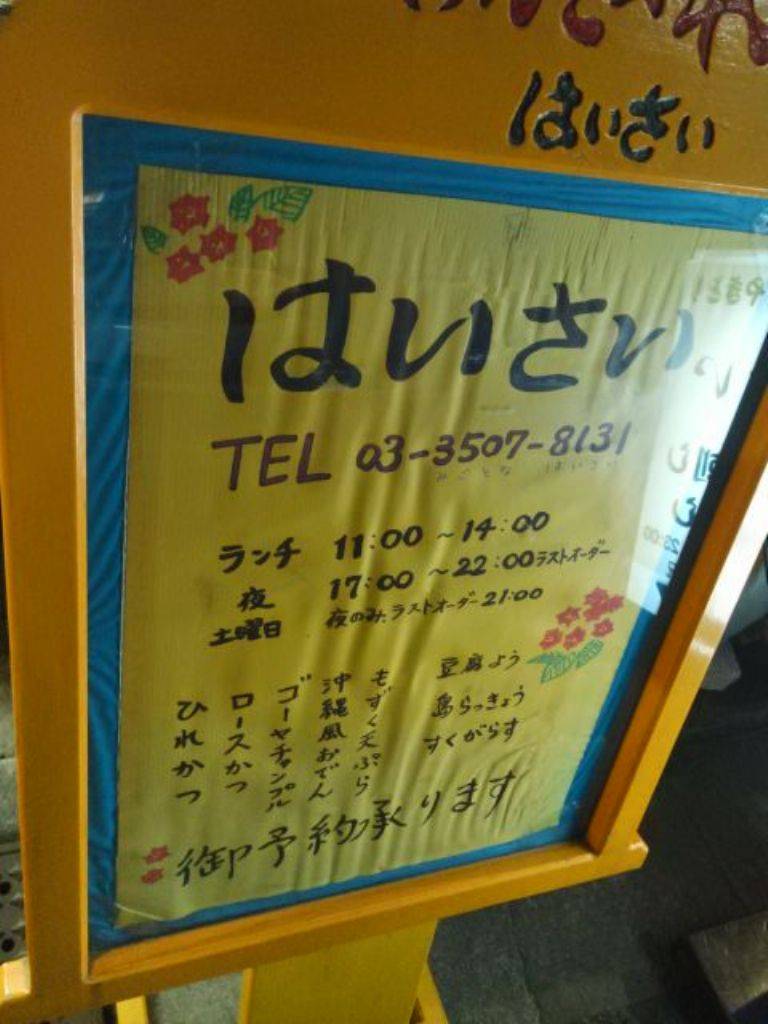 はいさい
はいさい
TEL 03-3507-8131
みごとな はいさい
ランチ 11:00 ~ 14:00
夜 17:00 ~ 22:00 ラストオーダー
土曜日 夜のみ、ラストオーダー 21:00
豆腐よう
島らっきょう
すくがらす
もずく天ぷら
沖縄風おでん
ゴーヤチャンプル
ロースかつ
ひれかつ
御予約承ります